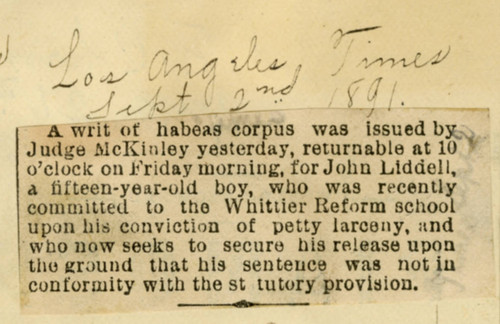 Los Angeles Times
Sept 2nd 1891.
A writ of habeas corpus was issued by
Judge McKinley yesterday, returnable at 10
o'clock on Friday morning, for John Liddell,
a fifteen-year-old boy, who was recently
committed to the Whittier Reform school
upon his conviction of petty larceny, and
who now seeks to secure his release upon
the ground that his sentence was not in
conformity with the st tutory provision.